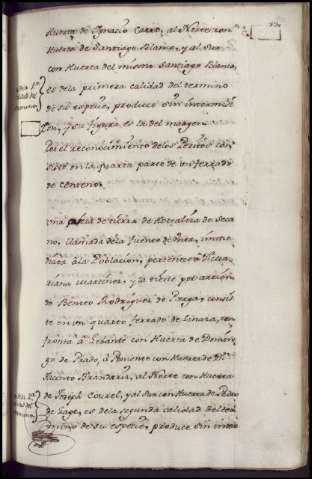 Huerta de Ignacio Carro, al Norte con
Huerta de Santiago Blanco, y al Sur
con Huerta del mismo Santiago Blanco,
es de la primera calidad del termino
de su especie, produce sin intermision,
y su figura es la del margen
Por el reconocimiento de los Peritos con
siste en la quarta parte de un ferrado
de centeno.
Una pieza de tierra de Hortaliza de Seca
no, llamada de la Fuente de, inme
diata à la Poblacion, pertenece à
Martinez, y la tiene por
Benito Rodriguez de, consis
te en un quarto ferrado de Linaza, con
fronta à Lebante con Huerta de Domin
go de Prado, à Poniente con Huerta de Dn
Jacinto, al Norte con Huerta
de Joseph Courel, y al Sur con Huerta de Pedro
de, es de la segunda calidad del ter
mino de su especie, produce sin inter